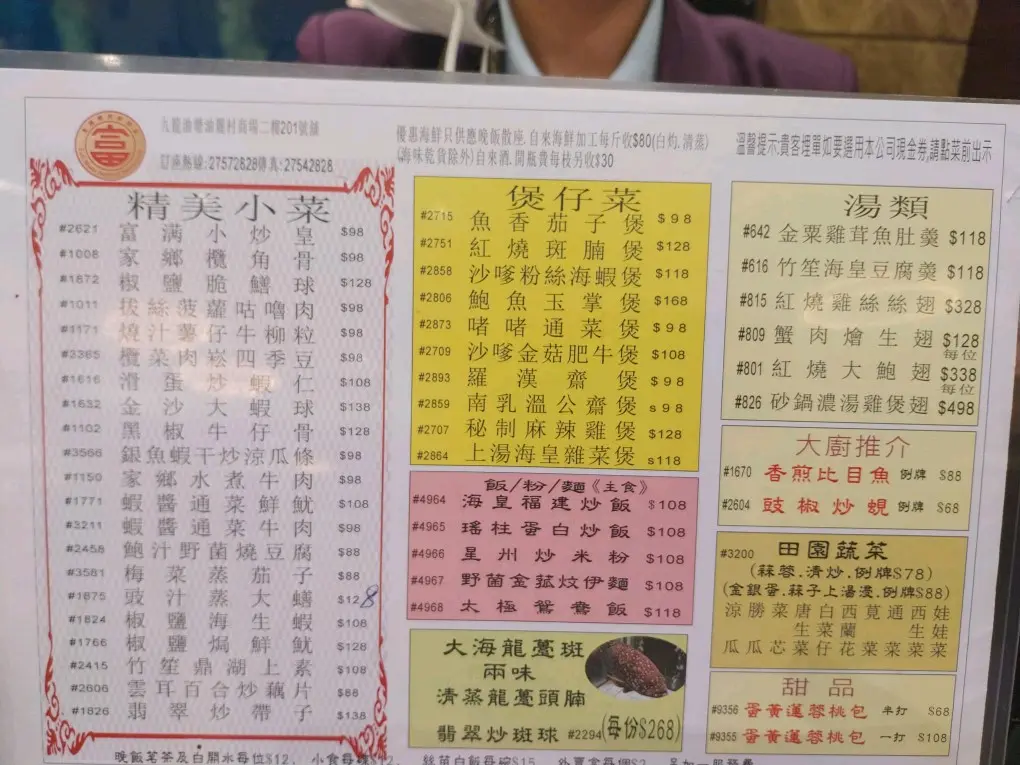 九龍油塘油麗村商場二樓201號舖
訂座熱線:27572828傳真:27542828
優惠海鮮只供應晚飯散座,自來海鮮加工每斤收$80(白灼,清蒸)
(海味乾貨除外)自來酒,開瓶費每枝另收$30
溫馨提示:貴客埋單如要選用本公司現金券,請點菜前出示
精美小菜
#2621 富滿小炒皇 $98
#1008 家鄉欖角骨 $98
#1872 椒鹽脆鱔球 $128
#1011 拔絲菠蘿咕嚕肉 $98
#1171 燒汁薯仔牛柳粒 $98
#3365 欖菜肉崧四季豆 $98
#1616 滑蛋炒蝦仁 $108
#1632 金沙大蝦球 $138
#1102 黑椒牛仔骨 $128
#3566 銀魚蝦干炒涼瓜條 $98
#1150 家鄉水煮牛肉 $98
#1771 蝦醬通菜鮮魷 $108
#3211 蝦醬通菜牛肉 $98
#2458 鮑汁野菌燒豆腐 $88
#3581 梅菜蒸茄子 $88
#1675 豉汁蒸大鱔 $128
#1824 椒鹽海生蝦 $108
#1766 椒鹽焗鮮魷 $128
#2415 竹笙鼎湖上素 $108
#2606 雲耳百合炒藕片 $88
#1826 翡翠炒帶子 $138
煲仔菜
#2715 魚香茄子煲 $98
#2751 紅燒斑腩煲 $128
#2858 沙嗲粉絲海蝦煲 $118
#2806 鮑魚玉掌煲 $168
#2873 啫啫通菜煲 $98
#2709 沙嗲金菇肥牛煲 $108
#2893 羅漢齋煲 $98
#2859 南乳溫公齋煲 $98
#2707 秘制麻辣雞煲 $128
#2864 上湯海皇雜菜煲 $118
飯/粉/麵《主食》
#4964 海皇福建炒飯 $108
#4965 瑤柱蛋白炒飯 $108
#4966 星州炒米粉 $108
#4967 野菌金菰炆伊麵 $108
#4968 太極鴛鴦飯 $118
大海龍躉斑
兩味
清蒸龍躉頭腩
翡翠炒斑球 #2294 (每份$268)
湯類
#642 金粟雞茸魚肚羹 $118
#616 竹笙海皇豆腐羹 $118
#815 紅燒雞絲絲翅 $328
#809 蟹肉燴生翅 $128
每位
#801 紅燒大鮑翅 $338
每位
#826 砂鍋濃湯雞煲翅 $498
大廚推介
#1670 香煎比目魚 例牌 $88
#2604 豉椒炒蜆 例牌 $68
#3200 田園蔬菜
(蒜蓉.清炒.例牌$78)
(金銀蛋.蒜子上湯浸.例牌$88)
涼勝菜唐白西莧通西娃
生菜蘭 生娃
瓜瓜芯菜仔花菜菜菜菜
甜品
#9356 蛋黃蓮蓉桃包 半打 $68
#9355 蛋黃蓮蓉桃包 一打 $108
晚飯茗茶及白開水每位$12、